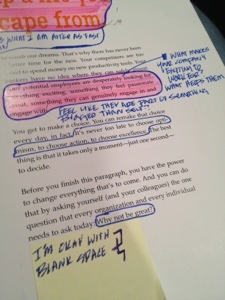 ape from
IS WHAT I AM
AFTER AS FAST
dream our dreams. That's why there has never been
better time for the new. Your competitors are too
to spend money on new productivity tools. Your
have no idea when they can
and potential employees are desperately looking for
something exciting, something they feel passionate
about, something they can genuinely engage in and
engage with.
WHAT MAKES
YOUR COMPANY
EXCITING TO
WORK FOR?
WHAT KEEPS THEM
FEEL LIKE THEY ARE PART OF SOMETHING
THAN SELF?
You get to make a choice. You can remake that choice
every day, in fact. It's never too late to choose opti-
mism, to choose action, to choose excellence. The best
thing is that it takes only a moment—just one second—
to decide.
Before you finish this paragraph, you have the power
to change everything that's to come. And you can do
that by asking yourself (and your colleagues) the one
question that every organization and every individual
needs to ask today: Why not be great?
I'M OKAY WITH
BLANK SPACE